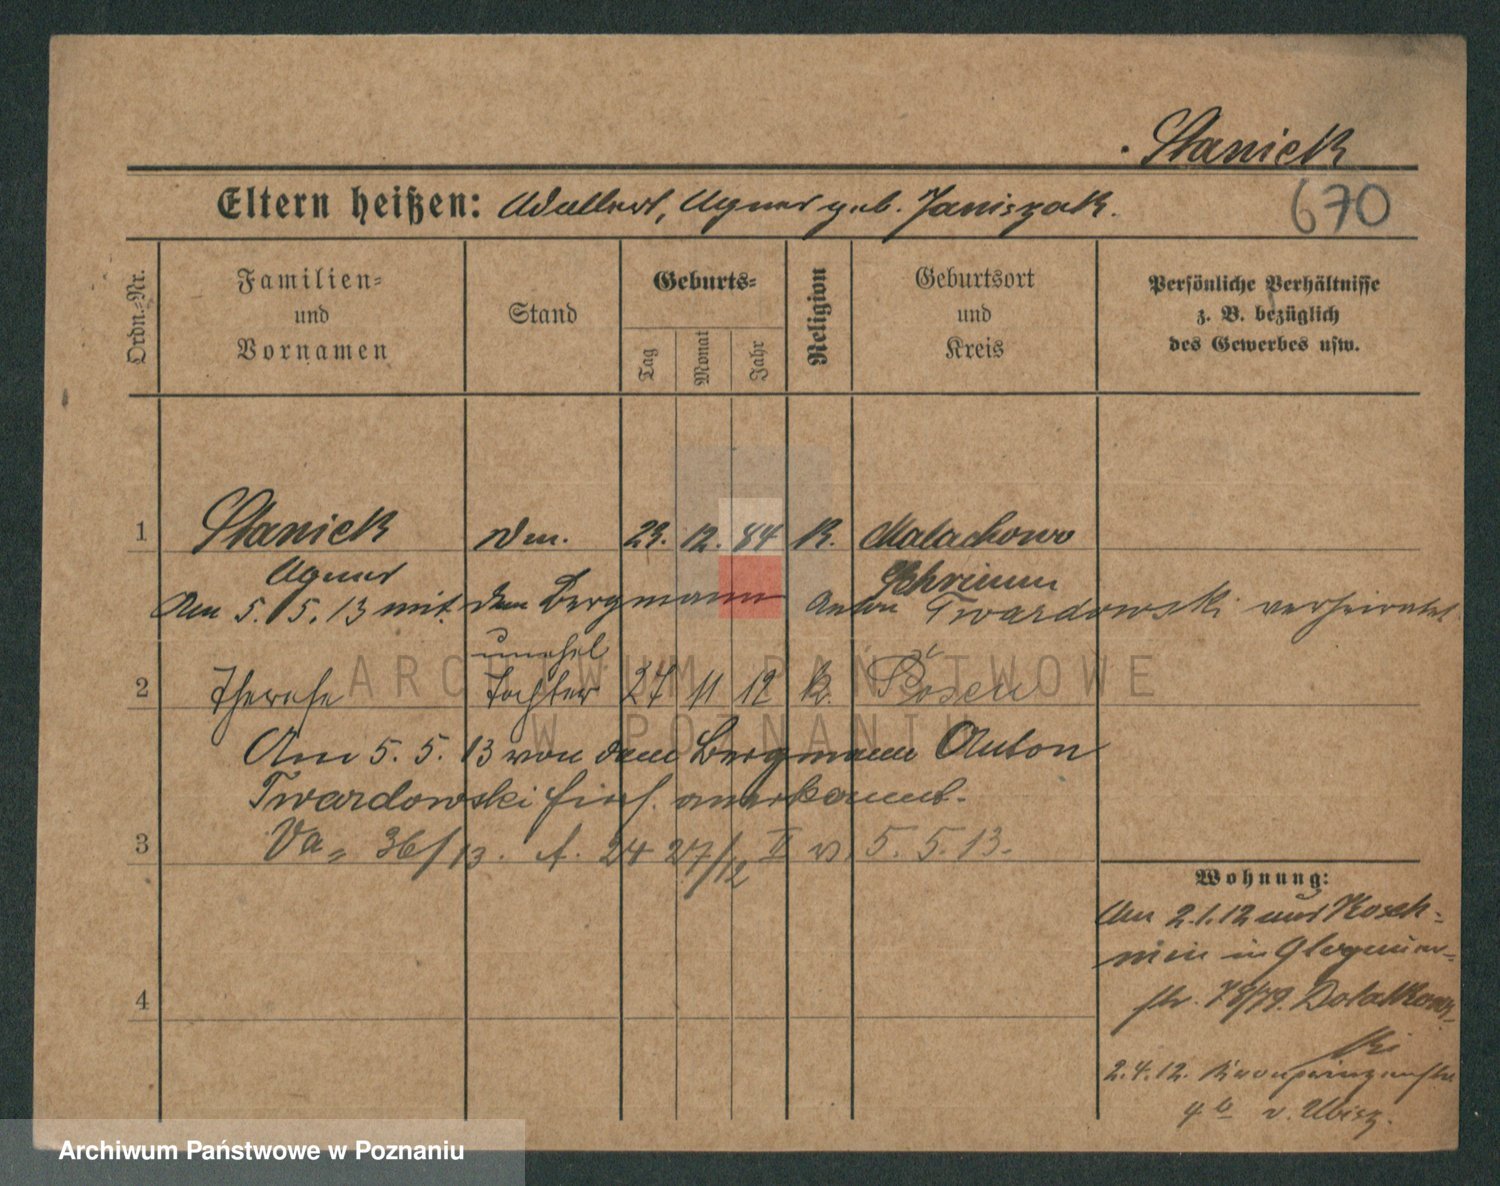 Staniek
670
Eltern heißen: Adalbert, Agnes geb. Janiszak.
Ordn.-Nr.
Familien-
und
Vornamen
Stand
Geburts-
Tag
Monat
Jahr
Religion
Geburtsort
und
Kreis
Persönliche Verhältnisse
z. B. bezüglich
des Gewerbes usw.
1 Staniek 23. 12. 84 K. Malachowo
Agnes Schrimm
Am 5. 5. 13 mit dem Bergmann Anton Twardowski verheiratet
unehel.
2 Therese Tochter 27 11 12 K. Posen
Am 5. 5. 13 von dem Bergmann Anton
Twardowski hier anerkannt.
3 Va 36/13. A. 24 27/12 II v. 5. 5. 13.
4
Wohnung:
Am 2.1.12 aus Kosch-
min in Glogauer-
str. 78/79.
ki
2.4.12. Kronprinzenstr
4 b v.
ARCHIWUM PAŃSTWOWE
W POZNANIU
Archiwum Państwowe w Poznaniu